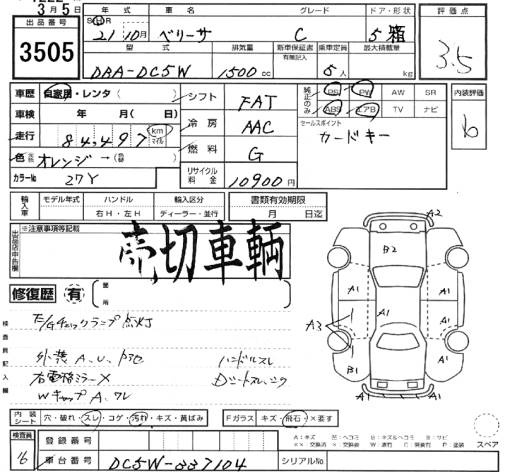 3月5日
出品番号
3505
年式 車名 グレード ドア・形状
S・H・R 21年10月 ベリーサ C 5 箱
型式 排気量 新車保証書 有無記入 乗車定員 最大積載量
DBA-DC5W 1500cc 5人 kg
評価点
3.5
車歴 自家用・レンタ( )
車検 年 月( 日)
走行 84,497 km マイル
色 オレンジ→( )
カラーNo 27Y
シフト FAT
冷房 AAC
燃料 G
リサイクル料金 10900円
純正のみ PS PW AW SR
ABS エアB TV ナビ
セールスポイント
カードキー
内装評価
輸入車 モデル年式 ハンドル 右H・左H 輸入区分 ディーラー・並行
書類有効期限
月 日迄
※注意事項等記載
売切車輌
修復歴 有
箇所
検査員記入欄
F/Gチェックランプ点灯
外装A、U、
ハンドルスレ
右電格ミラーX
WキャップA、ワレ
A2
B2
A1 A1
A1 A1
A3
B2
A1
A1
内装シート 穴・破れ・スレ・コゲ・汚れ・キズ・黄ばみ
Fガラス キズ・飛石・×要す
スペア
検査員
16
登録番号
車台番号 DC5W-337104
シリアルNo